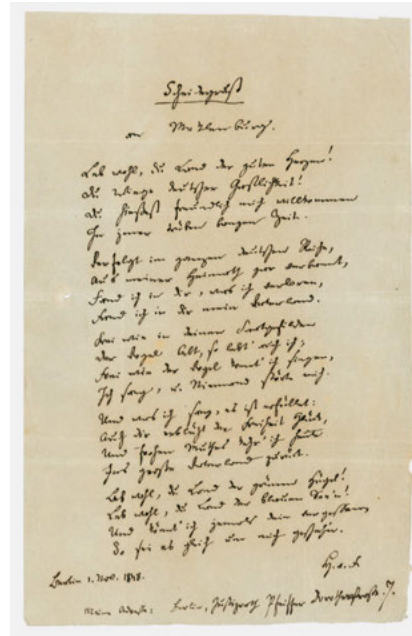 Scheidegruß
an Meklenburg.
Leb wohl, du Land der guten Herzen!
Du Wiege deutscher Gastlichkeit!
Du hießest freundlich mich willkommen
In jener trüben bangen Zeit.
Verfolgt im ganzen deutschen Reiche,
Aus meiner Heimath gar verbannt,
Fand ich in dir, was ich verloren,
Fand ich in dir mein Vaterland.
Frei wie in deinen Saatgefilden
Der Vogel lebt, so lebt' auch ich;
Frei wie der Vogel konnt' ich singen,
Ich sang, u. Niemand störte mich.
Und was ich sang, es ist erfüllet:
Auch dir erblüht der Freiheit Glück,
Und frohen Muthes kehr' ich heute
Ins große Vaterland zurück.
Leb wohl, du Land der grünen Hügel!
Leb wohl, du Land der blauen Seen!
Und könnt' ich jemals dein vergessen,
So sei es gleich um mich geschehn.
H. v. F.
Berlin 1. Nov. 1848.
Meine Adresse: Berlin, Justizrath Pfeiffer Dorotheenstr. 7.